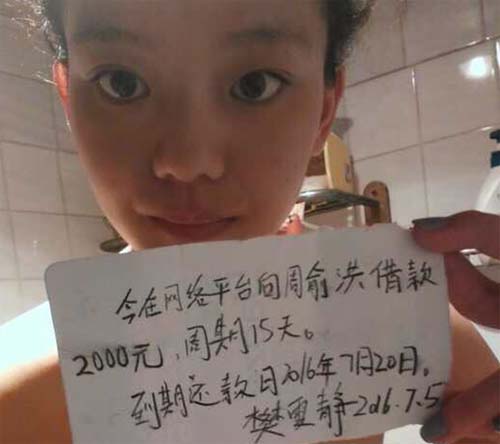 今在网络平台向周俞洪借款
2000元,周期15天。
到期还款日2016年7月20日。
樊雪静 2016.7.5